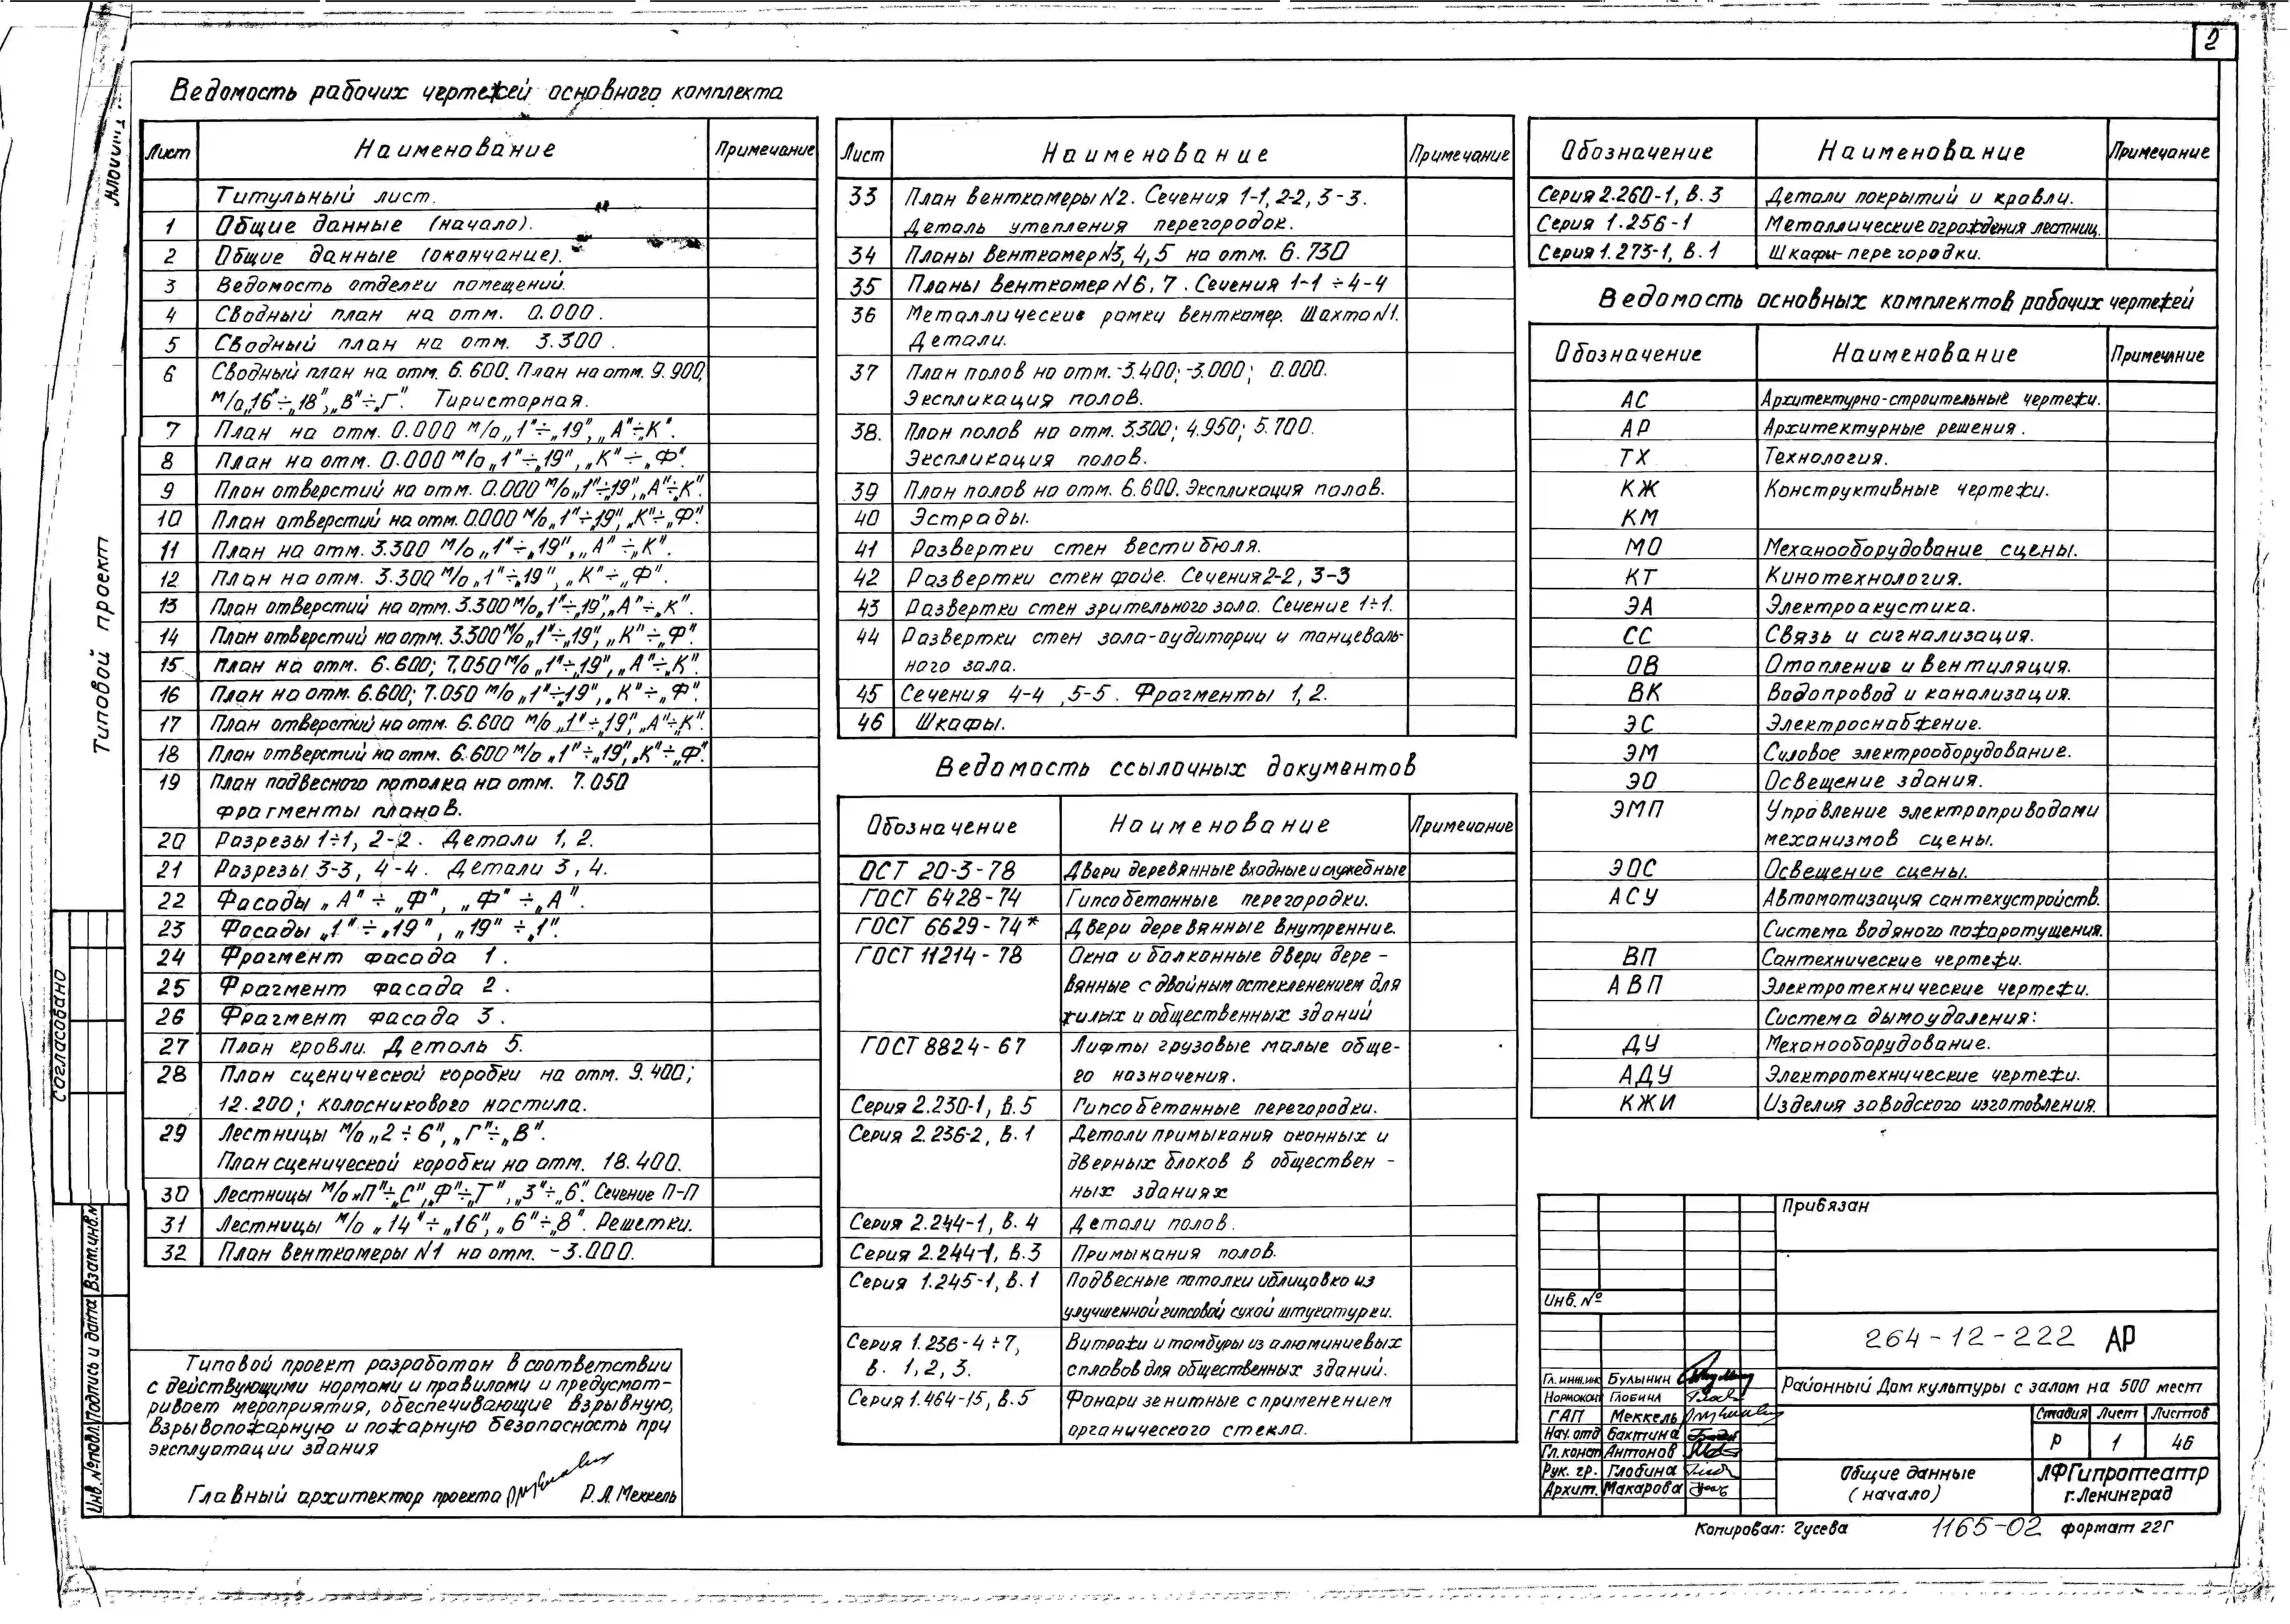 2
Ведомость рабочих чертежей основного комплекта
Лист Наименование Примечание
Титульный лист.
1 Общие данные (начало).
2 Общие данные (окончание).
3 Ведомость отделки помещений.
4 Сводный план на отм. 0.000.
5 Сводный план на отм. 3.300.
6 Сводный план на отм. 6.600. План на отм. 9.900,
м/о„16"÷„18",„В"÷„Г". Тиристорная.
7 План на отм. 0.000 м/о„1"÷„19",„А"÷„К".
8 План на отм. 0.000 м/о„1"÷„19",„К"÷„Ф".
9 План отверстий на отм. 0.000 м/о„1"÷„19",„А"÷„К".
10 План отверстий на отм. 0.000 м/о„1"÷„19",„К"÷„Ф".
11 План на отм. 3.300 м/о„1"÷„19",„А"÷„К".
12 План на отм. 3.300 м/о„1"÷„19",„К"÷„Ф".
13 План отверстий на отм. 3.300 м/о„1"÷„19",„А"÷„К".
14 План отверстий на отм. 3.300 м/о„1"÷„19",„К"÷„Ф".
15 План на отм. 6.600; 7.050 м/о„1"÷„19",„А"÷„К".
16 План на отм. 6.600; 7.050 м/о„1"÷„19",„К"÷„Ф".
17 План отверстий на отм. 6.600 м/о„1"÷„19",„А"÷„К".
18 План отверстий на отм. 6.600 м/о„1"÷„19",„К"÷„Ф".
19 План подвесного потолка на отм. 7.050
фрагменты планов.
20 Разрезы 1÷1, 2-2. Детали 1, 2.
21 Разрезы 3-3, 4-4. Детали 3, 4.
22 Фасады „А"÷„Ф", „Ф"÷„А".
23 Фасады „1"÷„19", „19"÷„1".
24 Фрагмент фасада 1.
25 Фрагмент фасада 2.
26 Фрагмент фасада 3.
27 План кровли. Деталь 5.
28 План сценической коробки на отм. 9.400;
12.200; колосникового настила.
29 Лестницы м/о„2÷6",„Г"÷„В".
План сценической коробки на отм. 18.400.
30 Лестницы м/о„П"÷„С",„Ф"÷„Т",„3"÷„6". Сечение П-П
31 Лестницы м/о „14"÷„16",„6"÷„8". Решетки.
32 План венткамеры №1 на отм. -3.000.
Типовой проект разработан в соответствии
с действующими нормами и правилами и предусмат-
ривает мероприятия, обеспечивающие взрывную,
взрывопожарную и пожарную безопасность при
эксплуатации здания
Главный архитектор проекта Р.Л. Меккель
Лист Наименование Примечание
33 План венткамеры №2. Сечения 1-1, 2-2, 3-3.
Деталь утепления перегородок.
34 Планы венткамер №3, 4, 5 на отм. 6.730
35 Планы венткамер №6, 7. Сечения 1-1 ÷ 4-4
36 Металлические рамки венткамер. Шахта №1.
Детали.
37 План полов на отм. -3.400; -3.000; 0.000.
Экспликация полов.
38. План полов на отм. 3.300; 4.950; 5.700.
Экспликация полов.
39 План полов на отм. 6.600. Экспликация полов.
40 Эстрады.
41 Развертки стен вестибюля.
42 Развертки стен фойе. Сечения 2-2, 3-3
43 Развертки стен зрительного зала. Сечение 1÷1.
44 Развертки стен зала-аудитории и танцеваль-
ного зала.
45 Сечения 4-4, 5-5. Фрагменты 1, 2.
46 Шкафы.
Ведомость ссылочных документов
Обозначение Наименование Примечание
ОСТ 20-3-78 Двери деревянные входные и служебные
ГОСТ 6428-74 Гипсобетонные перегородки.
ГОСТ 6629-74* Двери деревянные внутренние.
ГОСТ 11214-78 Окна и балконные двери дере-
вянные с двойным остекленением для
жилых и общественных зданий
ГОСТ 8824-67 Лифты грузовые малые обще-
го назначения.
Серия 2.230-1, в.5 Гипсобетонные перегородки.
Серия 2.236-2, в.1 Детали примыкания оконных и
дверных блоков в обществен-
ных зданиях
Серия 2.244-1, в.4 Детали полов.
Серия 2.244-1, в.3 Примыкания полов.
Серия 1.245-1, в.1 Подвесные потолки и облицовка из
улучшенной гипсовой сухой штукатурки.
Серия 1.236-4÷7, Витражи и тамбуры из алюминиевых
в. 1, 2, 3. сплавов для общественных зданий.
Серия 1.464-15, в.5 Фонари зенитные с применением
органического стекла.
Обозначение Наименование Примечание
Серия 2.260-1, в.3 Детали покрытий и кровли.
Серия 1.256-1 Металлические ограждения лестниц.
Серия 1.273-1, в.1 Шкафы-перегородки.
Ведомость основных комплектов рабочих чертежей
Обозначение Наименование Примечание
АС Архитектурно-строительные чертежи.
АР Архитектурные решения.
ТХ Технология.
КЖ Конструктивные чертежи.
КМ
МО Механооборудование сцены.
КТ Кинотехнология.
ЭА Электроакустика.
СС Связь и сигнализация.
ОВ Отопление и вентиляция.
ВК Водопровод и канализация.
ЭС Электроснабжение.
ЭМ Силовое электрооборудование.
ЭО Освещение здания.
ЭМП Управление электроприводами
механизмов сцены.
ЭОС Освещение сцены.
АСУ Автоматизация сантехустройств.
Система водяного пожаротушения.
ВП Сантехнические чертежи.
АВП Электротехнические чертежи.
Система дымоудаления:
ДУ Механооборудование.
АДУ Электротехнические чертежи.
КЖИ Изделия заводского изготовления.
Привязан
Инв. №
264-12-222 АР
Районный Дом культуры с залом на 500 мест
Гл. инж.инс Булынин
Нормокон Глобина
ГАП Меккель
Нач. отд Бахтина
Гл. конст Антонов
Рук. гр. Глобина
Архит. Макарова
Стадия Лист Листов
Р 1 46
Общие данные
(начало)
ЛФГипротеатр
г. Ленинград
Копировал: Гусева 1165-02 формат 22Г
Типовой проект
Согласовано
Инв. № подл. Подпись и дата Взам.инв.№